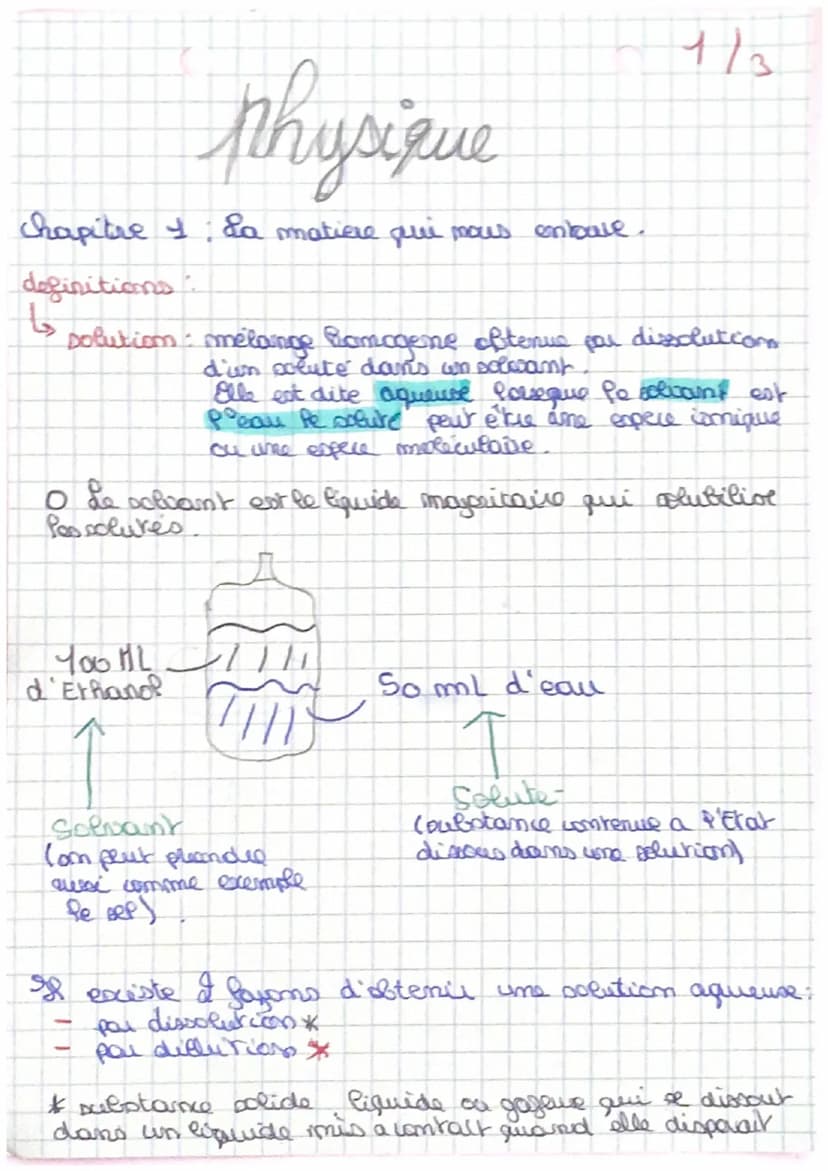 1/3
physique
Chapitre 1 : La matiere qui nous entoure.
definitions :
↳ solution : mélange homogene obtenue par dissolution
d'un soluté dans un solvant.
Elle est dite aqueuse lorseque le solvant est
l'eau le soluté peut être une espece ionique
ou une espece moléculaire.
O Le solvant est le liquide majoritaire qui solubilise
les solutés.
100 ML
d'Ethanol
50 mL d'eau
Solvant
(on peut prendre
aussi comme exemple
le sel).
Soluté
(substance contenue a l'Etat
dissous dans une solution)
Il existe 2 façons d'obtenir une solution aqueuse :
- par dissolution *
- par dillution *
* substance solide liquide ou gazeux qui se dissout
dans un liquide mis a contact quand elle disparait